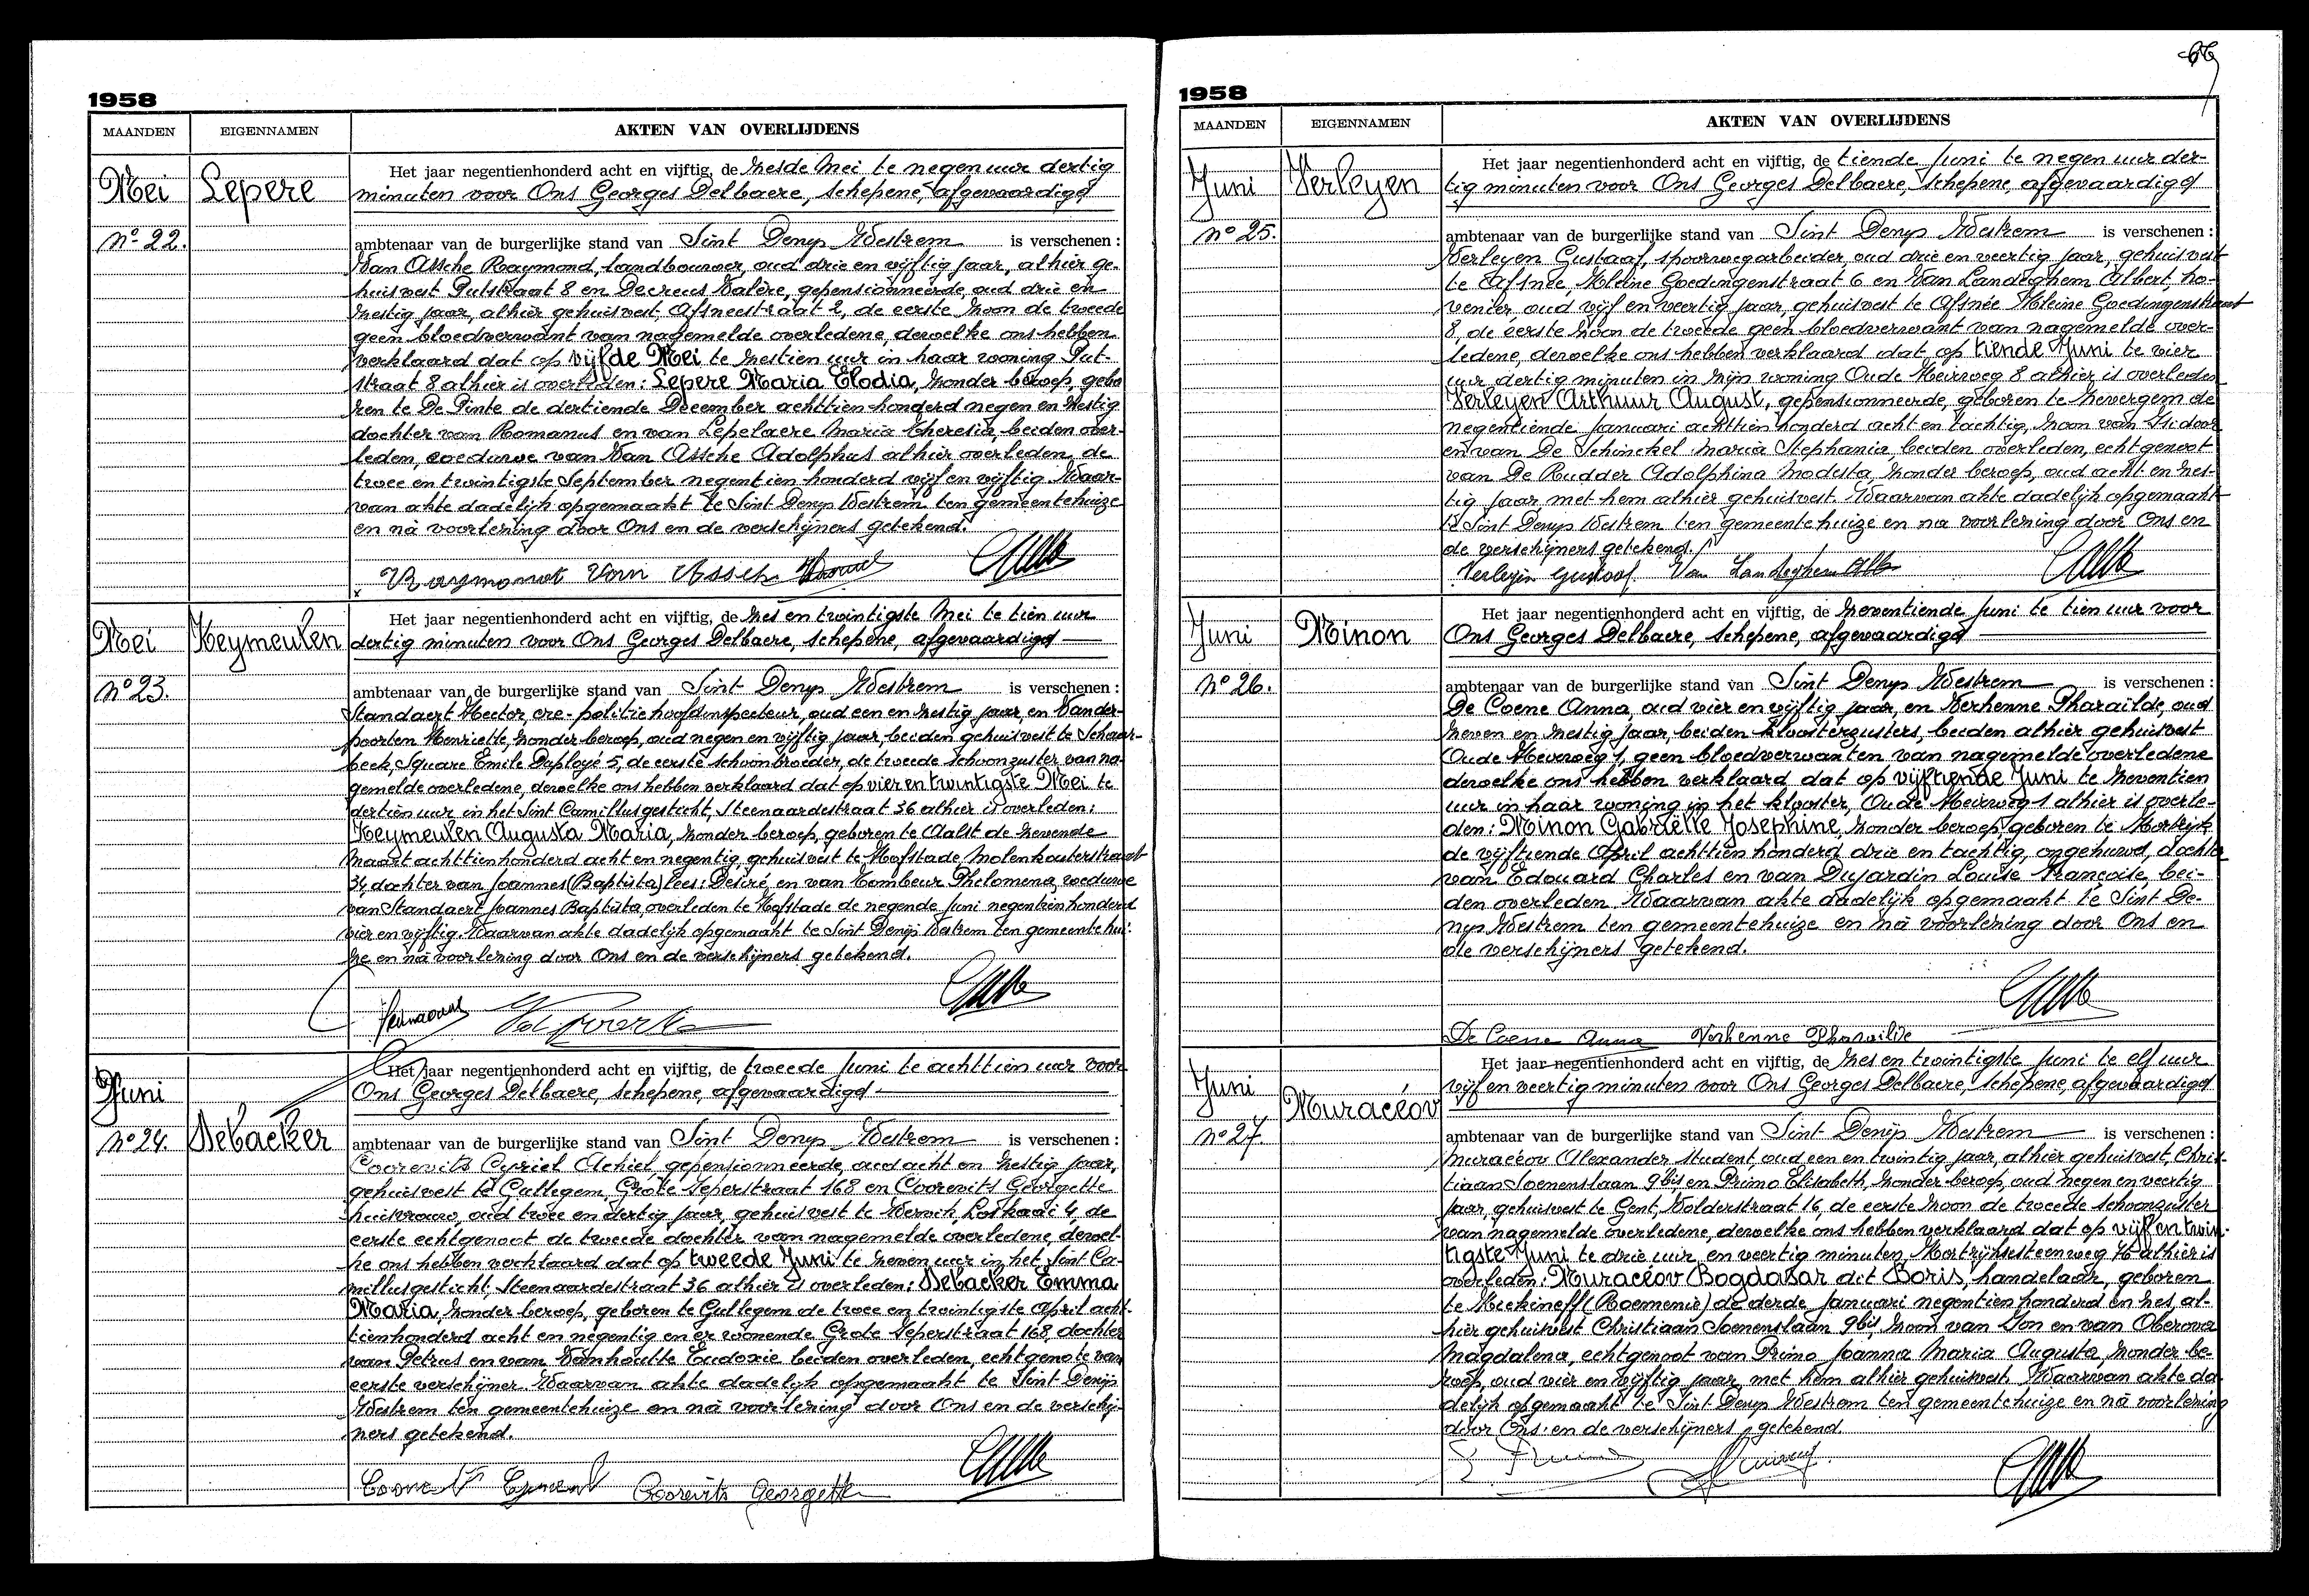 66
1958
MAANDEN EIGENNAMEN AKTEN VAN OVERLIJDENS
Mei Lepere
Nº 22.
Het jaar negentienhonderd acht en vijftig, de zesde Mei te negen uur dertig
minuten voor Ons Georges Delbaere, schepene, afgevaardigd
ambtenaar van de burgerlijke stand van Sint Denys Westrem is verschenen :
Van Assche Raymond, landbouwer, oud drie en vijftig jaar, alhier ge-
huisvest Putstraat 8 en Decreus Valère, gepensionneerde, oud drie en
zestig jaar, alhier gehuisvest, Afsneestraat 2, de eerste zoon de tweede
geen bloedverwant van nagemelde overledene, dewelke ons hebben
verklaard dat op vijfde Mei te zestien uur in haar woning Put-
straat 8 alhier is overleden: Lepere Maria Elodia, zonder beroep, gebo
ren te De Pinte de dertiende December achttien honderd negen en zestig
dochter van Romanus en van Lepelaere Maria Theresia, beiden over-
leden, weduwe van Van Assche Adolphus alhier overleden, de
twee en twintigste September negentien honderd vijf en vijftig. Waar-
van akte dadelijk opgemaakt te Sint Denys Westrem ten gemeentehuize
en nà voorlezing door Ons en de verschijners getekend.
Raymond Van Assche
Mei Heymeulen
Nº 23.
Het jaar negentienhonderd acht en vijftig, de zes en twintigste Mei te tien uur
dertig minuten voor Ons Georges Delbaere, schepene, afgevaardigd
ambtenaar van de burgerlijke stand van Sint Denys Westrem is verschenen :
Standaert Hector, ere-politiehoofdinspecteur, oud een en zestig jaar, en Vander-
poorten Henriette, zonder beroep, oud negen en vijftig jaar, beiden gehuisvest te Schaar-
beek, Square Emile Duployé 5, de eerste schoonbroeder, de tweede schoonzuster van na-
gemelde overledene, dewelke ons hebben verklaard dat op vier en twintigste Mei te
dertien uur in het Sint Camillusgesticht, Steenaardestraat 36 alhier is overleden:
Heymeulen Augusta Maria, zonder beroep, geboren te Aalst de zevende
Maart achttienhonderd acht en negentig, gehuisvest te Hofstade, Molenkouterstraat
34, dochter van Joannes (Baptista) lees: Desiré, en van Tombeur Philomena, weduwe
van Standaert Joannes Baptista, overleden te Hofstade de negende Juni negentienhonderd
vier en vijftig. Waarvan akte dadelijk opgemaakt te Sint Denijs Westrem ten gemeentehui-
ze en nà voorlezing door Ons en de verschijners getekend.
Juni
Nº 24. Debacker
Het jaar negentienhonderd acht en vijftig, de tweede Juni te achttien uur voor
Ons Georges Delbaere, schepene, afgevaardigd
ambtenaar van de burgerlijke stand van Sint Denys Westrem is verschenen :
Coorevits Cyriel Achiel, gepensionneerde, oud acht en zestig jaar,
gehuisvest te Gullegem, Grote Ieperstraat 168 en Coorevits Georgette
huisvrouw, oud twee en dertig jaar, gehuisvest te Wervik, Loskaai 4, de
eerste echtgenoot de tweede dochter van nagemelde overledene, dewel-
ke ons hebben verklaard dat op tweede Juni te zeven uur in het Sint Ca-
millusgesticht, Steenaardestraat 36 alhier is overleden: Debacker Emma
Maria, zonder beroep, geboren te Gullegem de twee en twintigste April acht-
tienhonderd acht en negentig en er wonende Grote Ieperstraat 168, dochter
van Petrus en van Vanhoutte Eudoxie beiden overleden, echtgenote van
eerste verschijner. Waarvan akte dadelijk opgemaakt te Sint Denijs
Westrem ten gemeentehuize en nà voorlezing door Ons en de verschij-
ners getekend.
Coorevits Georgette
1958
MAANDEN EIGENNAMEN AKTEN VAN OVERLIJDENS
Juni Verleyen
Nº 25.
Het jaar negentienhonderd acht en vijftig, de tiende Juni te negen uur der-
tig minuten voor Ons Georges Delbaere, schepene, afgevaardigd
ambtenaar van de burgerlijke stand van Sint Denys Westrem is verschenen :
Verleyen Gustaaf, spoorwegarbeider, oud drie en veertig jaar, gehuisvest
te Afsnée, Kleine Goedingenstraat 6 en Van Landeghem Albert, ho-
venier, oud vijf en veertig jaar, gehuisvest te Afsnée Kleine Goedingenstraat
8, de eerste zoon de tweede geen bloedverwant van nagemelde over-
ledene, dewelke ons hebben verklaard dat op tiende Juni te vier
uur dertig minuten in zijn woning Oude Heirweg 8 alhier is overleden
Verleyen Arthuur August, gepensionneerde, geboren te Zevergem de
negentiende Januari achttien honderd acht en tachtig, zoon van Isidoor
en van De Schinckel Maria Stephania, beiden overleden, echtgenoot
van De Rudder Adolphina Modesta, zonder beroep, oud acht en zes-
tig jaar met hem alhier gehuisvest. Waarvan akte dadelijk opgemaakt
te Sint Denys Westrem ten gemeentehuize en na voorlezing door Ons en
de verschijners getekend.
Verleyen Gustaaf Van Landeghem Alb
Juni Minon
Nº 26.
Het jaar negentienhonderd acht en vijftig, de zeventiende Juni te tien uur voor
Ons Georges Delbaere, schepene, afgevaardigd
ambtenaar van de burgerlijke stand van Sint Denys Westrem is verschenen :
De Coene Anna, oud vier en vijftig jaar, en Verhenne Pharaïlde, oud
zeven en zestig jaar, beiden kloosterzusters, beiden alhier gehuisvest
Oude Heirweg 1, geen bloedverwanten van nagemelde overledene
dewelke ons hebben verklaard dat op vijftiende Juni te zeventien
uur in haar woning in het klooster, Oude Heirweg 1 alhier is overle-
den: Minon Gabriëlle Josephine, zonder beroep, geboren te Kortrijk
de vijftiende April achttien honderd drie en tachtig, ongehuwd, dochter
van Edouard Charles en van Dujardin Louise Françoise, bei-
den overleden. Waarvan akte dadelijk opgemaakt te Sint De-
nys Westrem ten gemeentehuize en nà voorlezing door Ons en
de verschijners getekend.
De Coene Anna Verhenne Pharaïlde
Juni Muracéov
Nº 27.
Het jaar negentienhonderd acht en vijftig, de zes en twintigste Juni te elf uur
vijf en veertig minuten voor Ons Georges Delbaere, schepene, afgevaardigd
ambtenaar van de burgerlijke stand van Sint Denijs Westrem is verschenen :
Muracéov Alexander student, oud een en twintig jaar, alhier gehuisvest, Chris-
tiaan Soenenslaan 9bis en Primo Elisabeth, zonder beroep, oud negen en veertig
jaar, gehuisvest te Gent, Volderstraat 16, de eerste zoon de tweede schoonzuster
van nagemelde overledene, dewelke ons hebben verklaard dat op vijf en twin-
tigste Juni te drie uur en veertig minuten, Kortrijksesteenweg 76 alhier is
overleden: Muracéov Bogdasar dit Boris, handelaar, geboren
te Mickineff (Roemenië) de derde Januari negentien honderd en zes, al-
hier gehuisvest Christiaan Soenenslaan 9bis, zoon van Ion en van Oberova
Magdalena, echtgenoot van Primo Joanna Maria Augusta, zonder be-
roep, oud vier en vijftig jaar, met hem alhier gehuisvest. Waarvan akte da-
delijk opgemaakt te Sint Denys Westrem ten gemeentehuize en nà voorlezing
door Ons en de verschijners getekend.